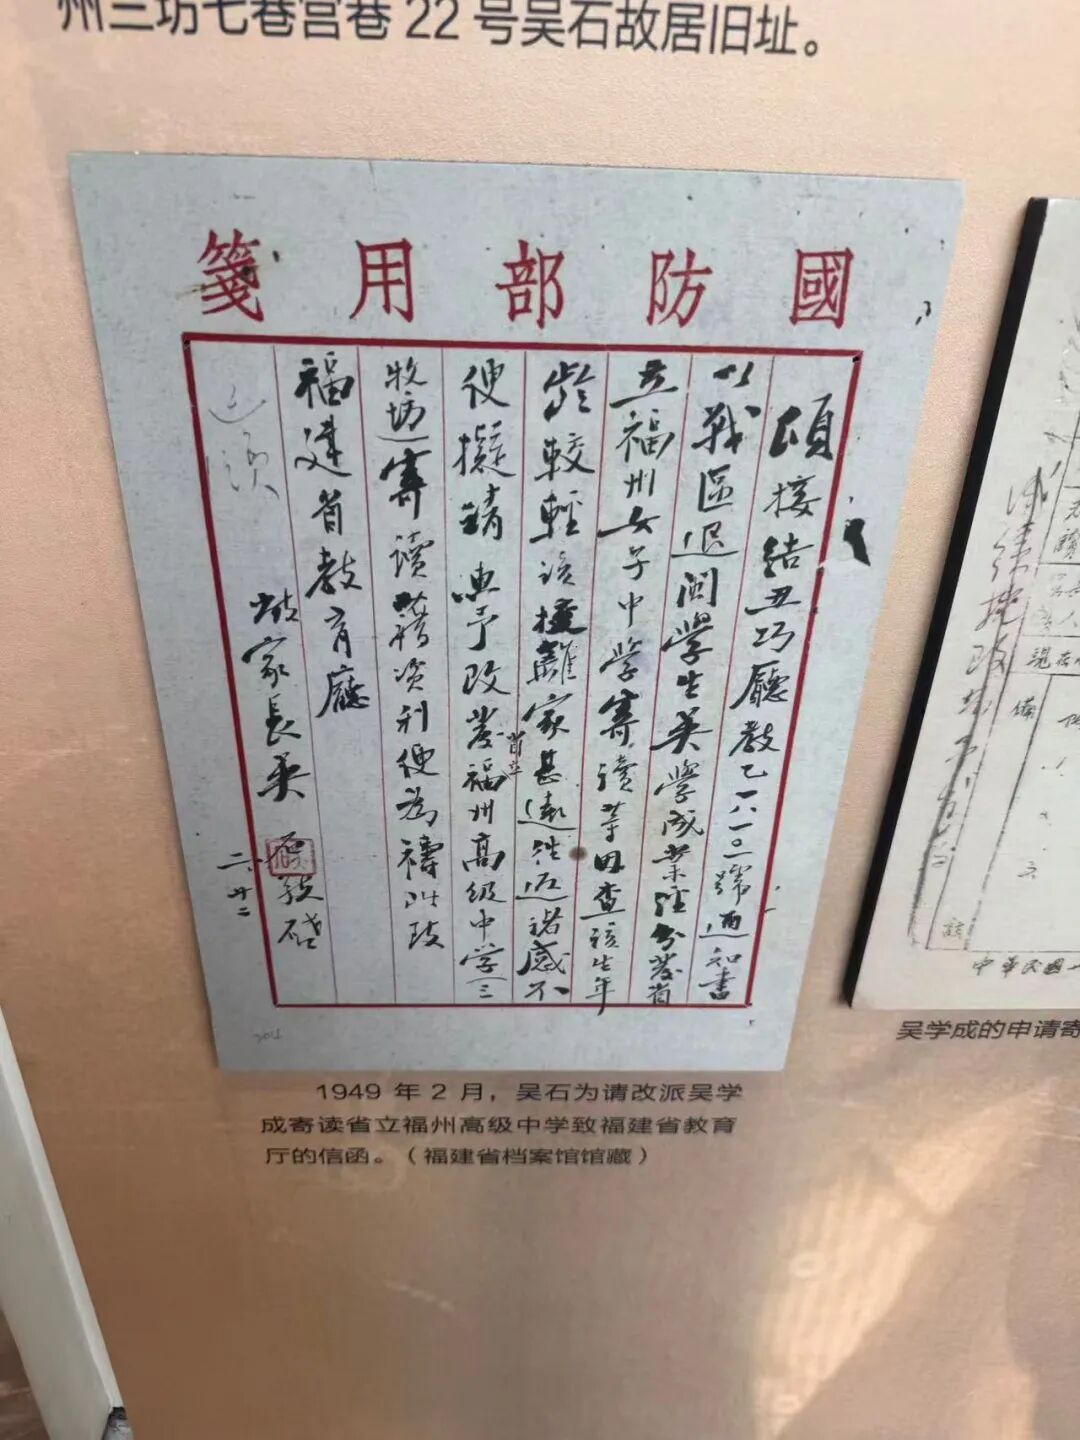 州三坊七巷宫巷 22 号吴石故居旧址。
國防部用箋
頃接結丑巧廳教乙一八一〇二號通知書
以戰區退閩學生吳學成業經分發省
立福州女子中學寄讀等由查該生年
齡較輕該校離家甚遠往返諸感不
便擬請惠予改發省立福州高級中學（三
牧坊）寄讀藉資利便為禱此致
福建省教育廳
家長吳石敬啓
二、廿二
1949 年 2 月，吴石为请改派吴学
成寄读省立福州高级中学致福建省教育
厅的信函。（福建省档案馆馆藏）
現在
備
中華民國
吴学成的申请寄